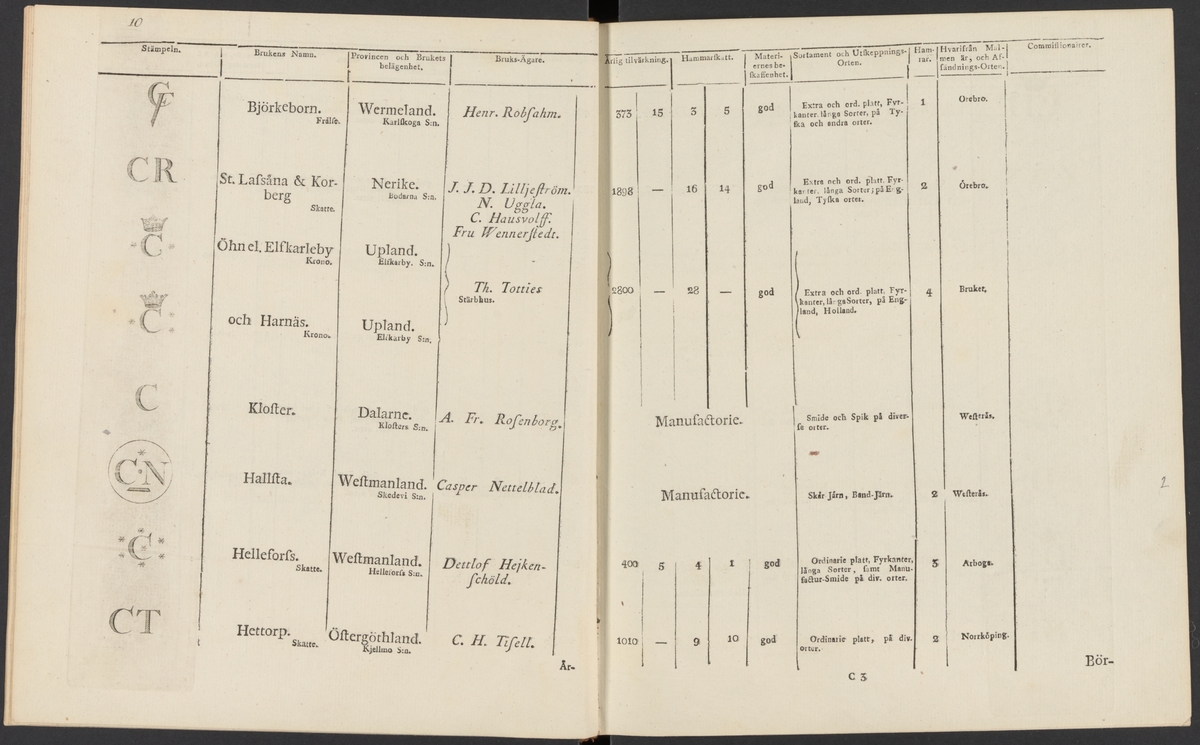 10
Stämpeln. Brukens Namn. Provincen och Brukets belägenhet. Bruks-Ägare. Årlig tilvärkning. Hammarskatt. Materiernes beskaffenhet. Sortament och Utskeppnings-Orten. Hamrar. Hvarifrån Malmen är, och Afsändnings-Orten. Commissionairer.
CF
Björkeborn. Wermeland. Henr. Robſahm. 373 15 3 5 god Extra och ord. platt, Fyr- 1 Orebro.
Frälſe. Karlſkoga S:n. kanter, långa Sorter, på Ty-
ſka och andra orter.
CR
St. Laſsåna & Kor- Nerike. J. J. D. Lilljeſtröm. 1898 — 16 14 god Extra och ord. platt, Fyr- 2 Örebro.
berg Boderna S:n. N. Uggla. kanter, långa Sorter; på Eng-
Skatte. C. Hausvolff. land, Tyſka orter.
Fru Wennerſtedt.
C
Öhn el. Elfkarleby Upland.
Krono. Elfkarby. S:n.
Th. Totties 2800 — 28 — god Extra och ord. platt, Fyr- 4 Bruket,
Stärbhus. kanter, långa Sorter, på Eng-
land, Holland.
C
och Harnäs. Upland.
Krono. Elfkarby S:n.
C
Kloſter. Dalarne. A. Fr. Roſenborg. Manufactorie. Smide och Spik på diver- Weſterås.
Kloſters S:n. ſe orter.
C·N
Hallſta. Weſtmanland. Casper Nettelblad. Manufactorie. Skär Järn, Band-Järn. 2 Weſterås.
Skedevi S:n.
2
C
Helleforſs. Weſtmanland. Dettlof Hejken- 400 5 4 1 god Ordinarie platt, Fyrkanter, 3 Arboga.
Skatte. Helleforſs S:n. ſchöld. långa Sorter, ſamt Manu-
factur-Smide på div. orter.
CT
Hettorp. Öſtergöthland. C. H. Tiſell. 1010 — 9 10 god Ordinarie platt, på div. 2 Norrköping.
Skatte. Kjellmo S:n. orter.
Är- Bör-
C 3